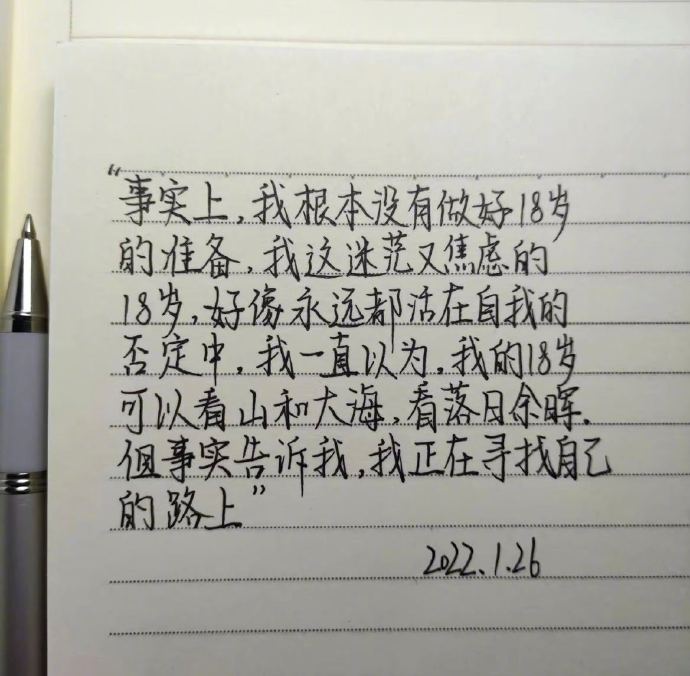 “事实上，我根本没有做好18岁
的准备，我这迷茫又焦虑的
18岁，好像永远都活在自我的
否定中，我一直以为，我的18岁
可以看山和大海，看落日余晖.
但事实告诉我，我正在寻找自己
的路上”
2022.1.26